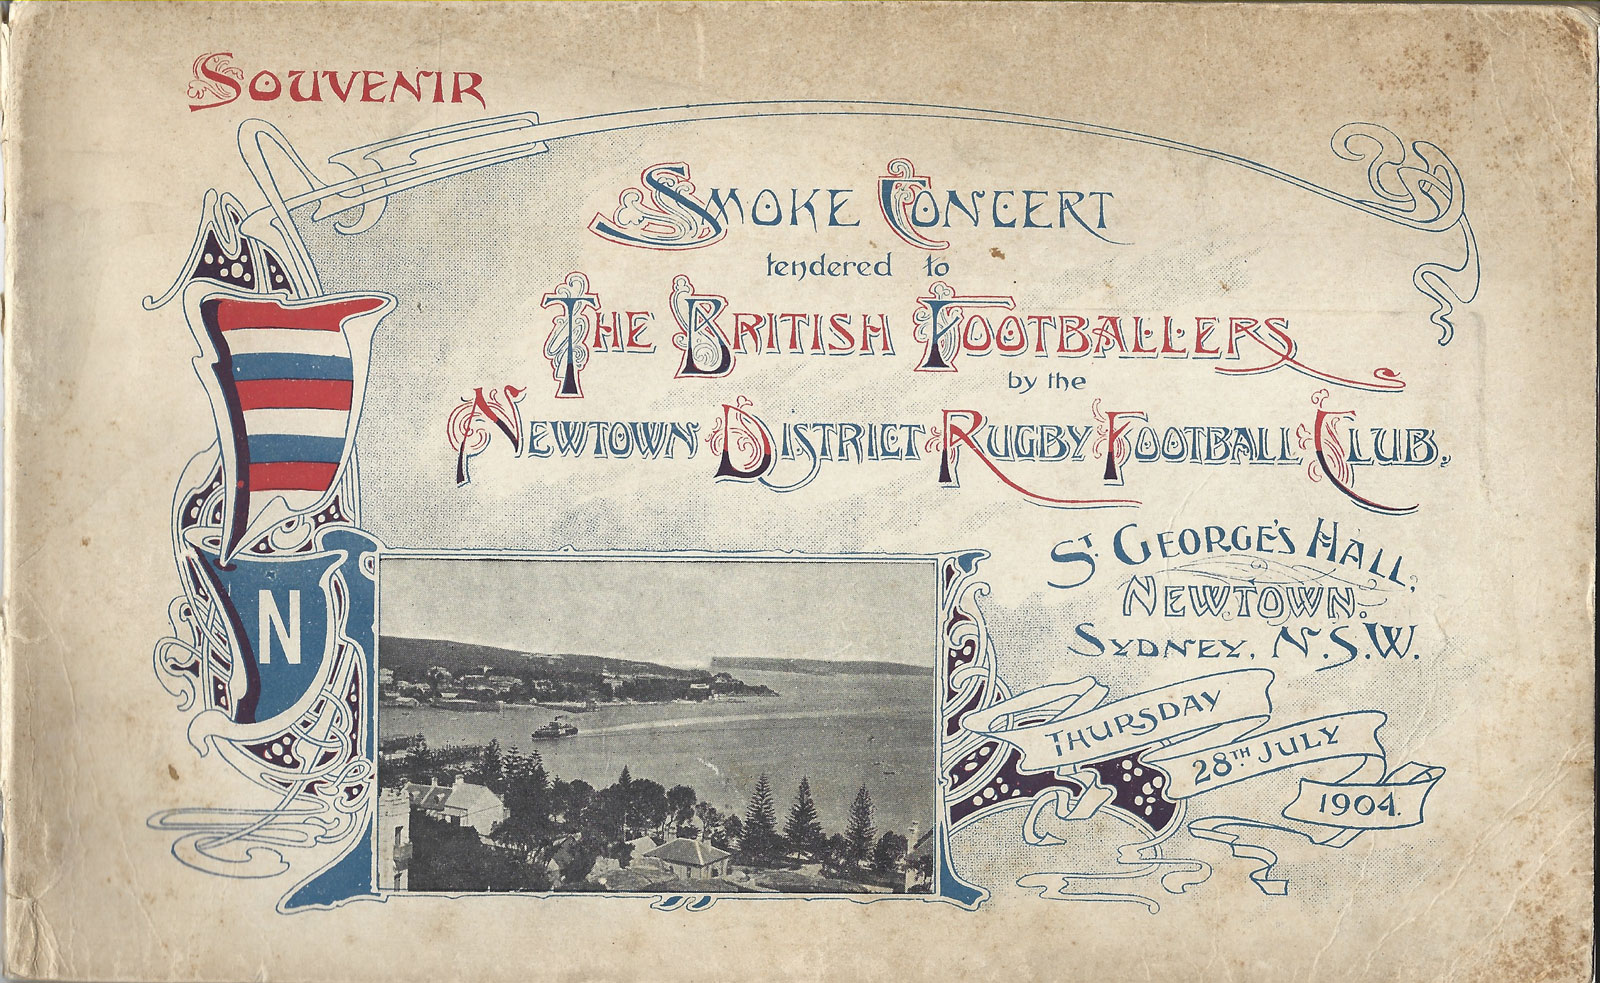 SOUVENIR
SMOKE CONCERT
tendered to
THE BRITISH FOOTBALLERS
by the
NEWTOWN DISTRICT RUGBY FOOTBALL CLUB.
ST. GEORGE'S HALL,
NEWTOWN.
SYDNEY, N.S.W.
THURSDAY
28TH JULY
1904.
N